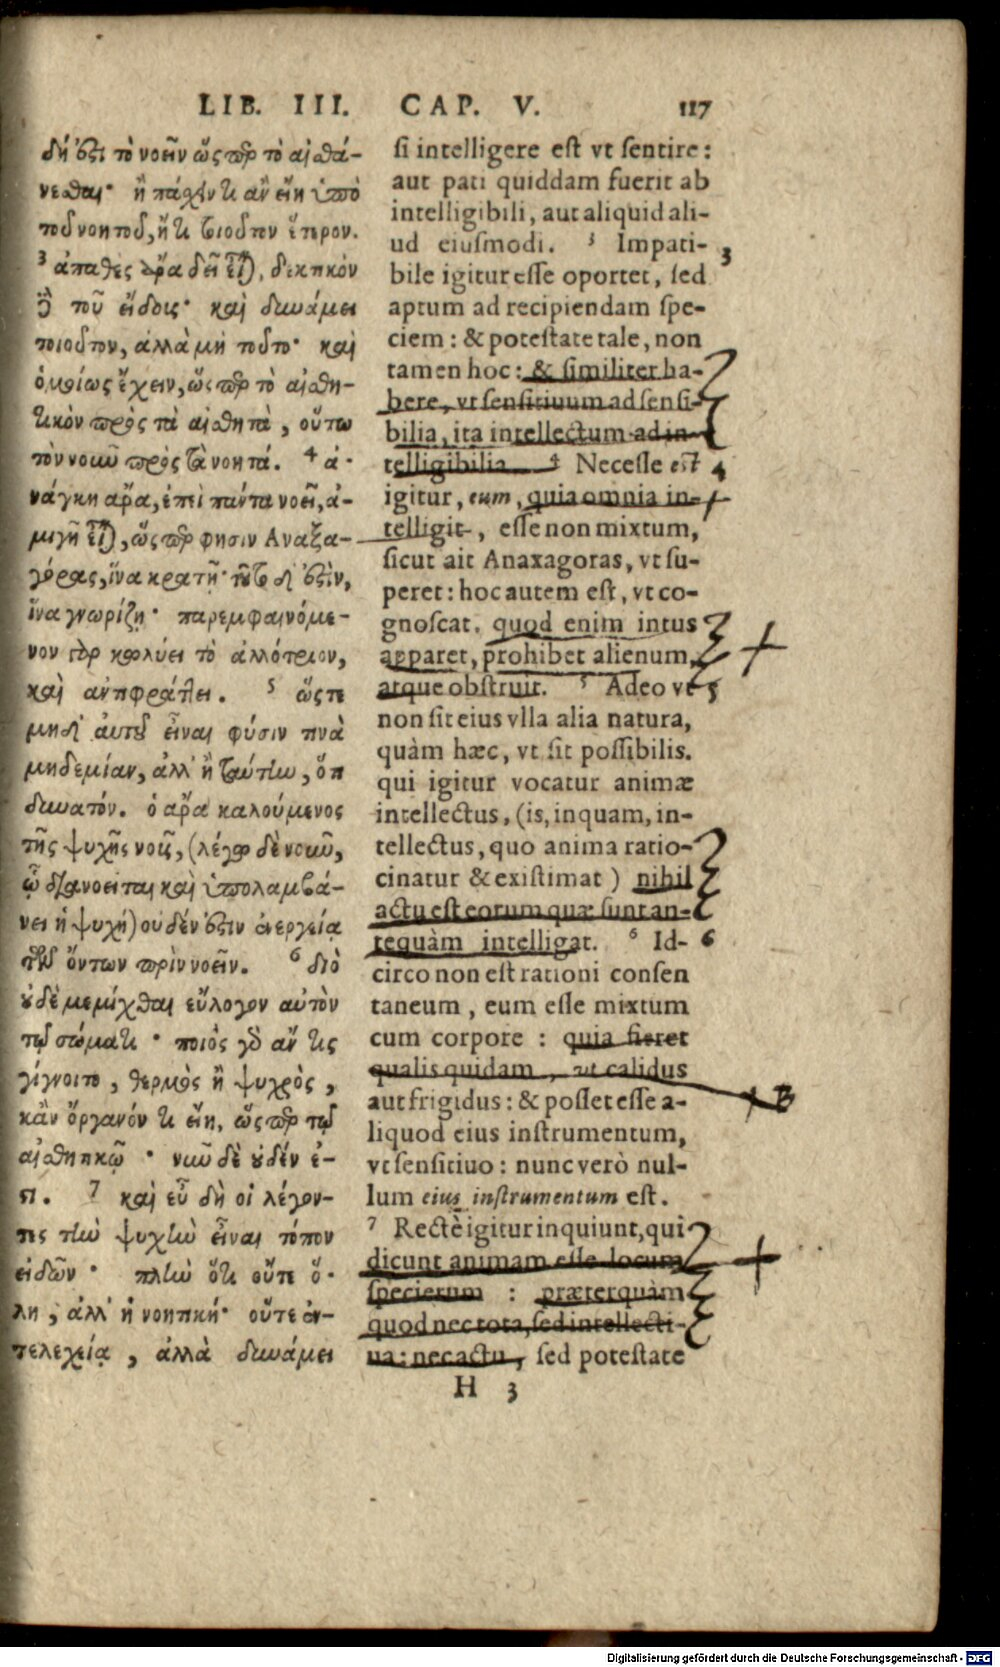 LIB. III. CAP. V. 117
δή ἐστι τὸ νοεῖν ὥσπερ τὸ αἰσθά-
νεσθαι· ἢ πάχειν τι ἂν εἴη ὑπὸ
τοῦ νοητοῦ, ἤ τι τοιοῦτον ἕτερον.
3 ἀπαθὲς ἄρα δεῖ εἶναι, δεκτικὸν
δὲ τοῦ εἴδους· καὶ δυνάμει
τοιοῦτον, ἀλλὰ μὴ τοῦτο· καὶ
ὁμοίως ἔχειν, ὥσπερ τὸ αἰσθη-
τικὸν πρὸς τὰ αἰσθητὰ, οὕτω
τὸν νοῦν πρὸς τὰ νοητά. 4 ἀ-
νάγκη ἄρα, ἐπεὶ πάντα νοεῖ, ἀ-
μιγῆ εἶναι, ὥσπερ φησὶν Αναξα-
γόρας, ἵνα κρατῇ· τοῦτο δ' ἐστὶν,
ἵνα γνωρίζῃ· παρεμφαινόμε-
νον γὰρ κωλύει τὸ ἀλλότριον,
καὶ ἀντιφράττει. 5 ὥστε
μηδ' αὐτοῦ εἶναι φύσιν τινὰ
μηδεμίαν, ἀλλ' ἢ ταύτην, ὅτι
δυνατόν. ὁ ἄρα καλούμενος
τῆς ψυχῆς νοῦς, (λέγω δὲ νοῦν,
ᾧ διανοεῖται καὶ ὑπολαμβά-
νει ἡ ψυχὴ) οὐδέν ἐστιν ἐνεργείᾳ
τῶν ὄντων πρὶν νοεῖν. 6 διὸ
οὐδὲ μεμίχθαι εὔλογον αὐτὸν
τῷ σώματι· ποιὸς γὰρ ἄν τις
γίγνοιτο, θερμὸς ἢ ψυχρὸς,
κἂν ὄργανόν τι εἴη, ὥσπερ τῷ
αἰσθητικῷ· νῦν δὲ οὐδέν ἐ-
στι. 7 καὶ εὖ δὴ οἱ λέγον-
τες τὴν ψυχὴν εἶναι τόπον
εἰδῶν· πλὴν ὅτι οὔτε ὅ-
λη, ἀλλ' ἡ νοητική· οὔτε ἐν-
τελεχείᾳ, ἀλλὰ δυνάμει
si intelligere est vt sentire:
aut pati quiddam fuerit ab
intelligibili, aut aliquid ali-
ud eiusmodi. 3 Impati- 3
bile igitur esse oportet, sed
aptum ad recipiendam spe-
ciem: & potestate tale, non
tamen hoc: & similiter ha-
bere, vt sensitiuum ad sensi-
bilia, ita intellectum ad in-
telligibilia. 4 Necesse est 4
igitur, eum, quia omnia in-
telligit, esse non mixtum,
sicut ait Anaxagoras, vt su-
peret: hoc autem est, vt co-
gnoscat. quod enim intus
apparet, prohibet alienum,
atque obstruit. 5 Adeo vt 5
non sit eius vlla alia natura,
quàm hæc, vt sit possibilis.
qui igitur vocatur animæ
intellectus, (is, inquam, in-
tellectus, quo anima ratio-
cinatur & existimat) nihil
actu est eorum quæ sunt an-
tequàm intelligat. 6 Id- 6
circo non est rationi consen
taneum, eum esse mixtum
cum corpore: quia fieret
qualis quidam, vt calidus
aut frigidus: & posset esse a-
liquod eius instrumentum,
vt sensitiuo: nunc verò nul-
lum eius instrumentum est.
7 Rectè igitur inquiunt, qui
dicunt animam esse locum
specierum: præterquàm
quod nec tota, sed intellecti-
ua: nec actu, sed potestate
H 3
Digitalisierung gefördert durch die Deutsche Forschungsgemeinschaft - DFG